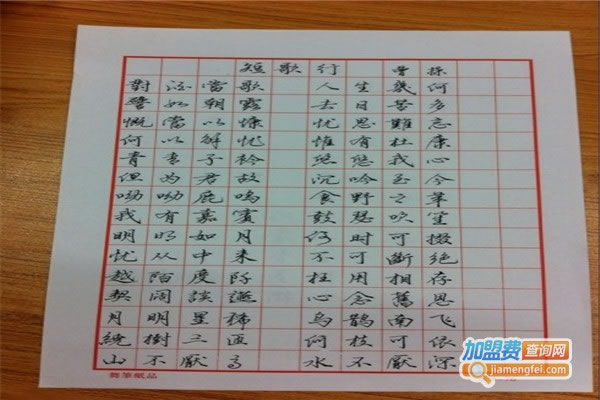 短歌行 曹操
對酒當歌 人生幾何
譬如朝露 去日苦多
慨當以慷 忧思難忘
何以解忧 惟有杜康
青青子衿 悠悠我心
但为君故 沉吟至今
呦呦鹿鳴 食野之苹
我有嘉賓 鼓瑟吹笙
明明如月 何时可掇
忧从中来 不可斷絕
越陌度阡 枉用相存
契闊談讌 心念舊恩
月明星稀 烏鵲南飞
繞樹三匝 何枝可依
山不厭高 水不厭深
加盟费查询网
jiamengfei.com